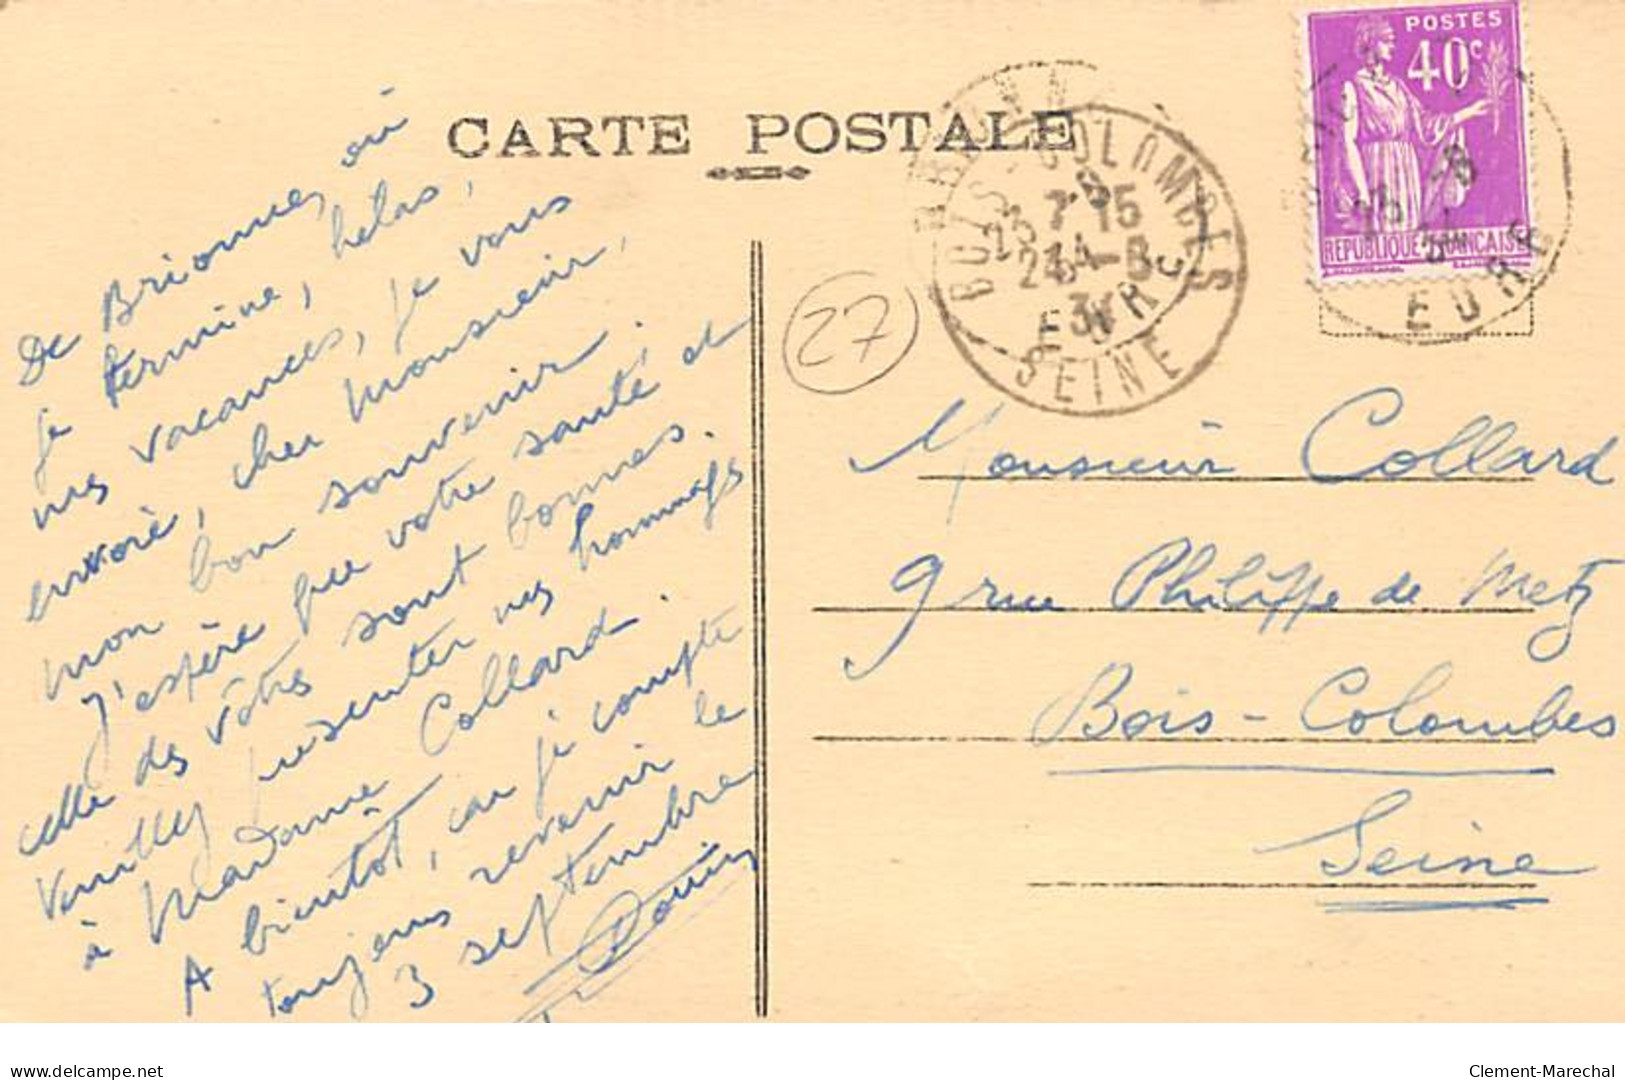 CARTE POSTALE
POSTES
40c
REPUBLIQUE FRANCAISE
BOIS-COLOMBES
7 15
24-8
SEINE
EURE
EURE
27
De Brionnes, où
je termine, hélas,
mes vacances, je vous
envoie, cher Monsieur,
mon bon souvenir.
J'espère que votre santé et
celle des vôtres sont bonnes.
Veuillez présenter mes hommages
à Madame Collard.
A bientôt, car je compte
toujours revenir le
3 septembre
Monsieur Collard
9 rue Philippe de Metz
Bois-Colombes
Seine
delcampe.net
Clement-Marechal